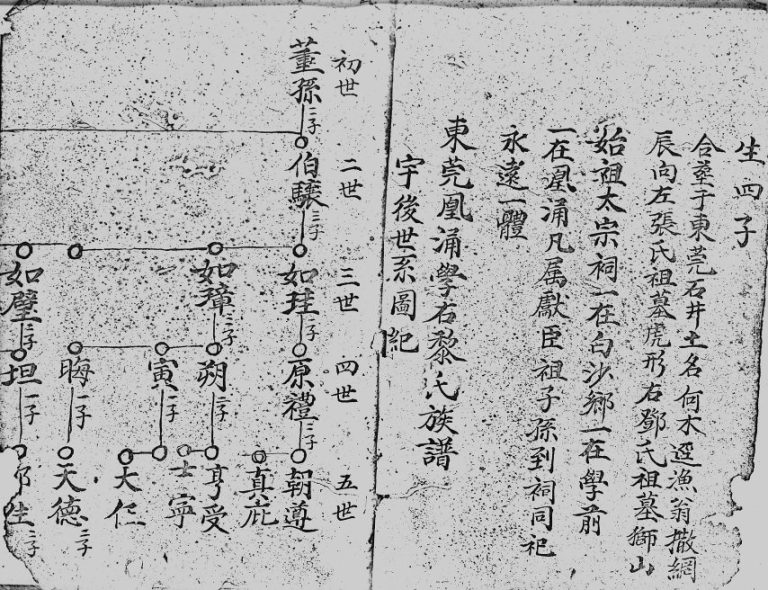 生四子
合葬于東莞石井土名何木逕漁翁撒網
辰向左張氏祖墓虎形右鄧氏祖墓獅山
始祖太宗祠一在白沙鄉一在學前
一在凰涌凡属獻臣祖子孫到祠同祀
永遠一體
東莞凰涌學右黎氏族譜
宇後世系圖紀
初世
二世
三世
四世
五世
董孫
二子
伯驤
三子
如珪
一子
原禮
二子
朝遵
真庇
如璋
三子
朔
二子
亨受
士寧
寅
一子
大仁
晦
一子
天德
二子
如璧
二子
坦
一子
二子